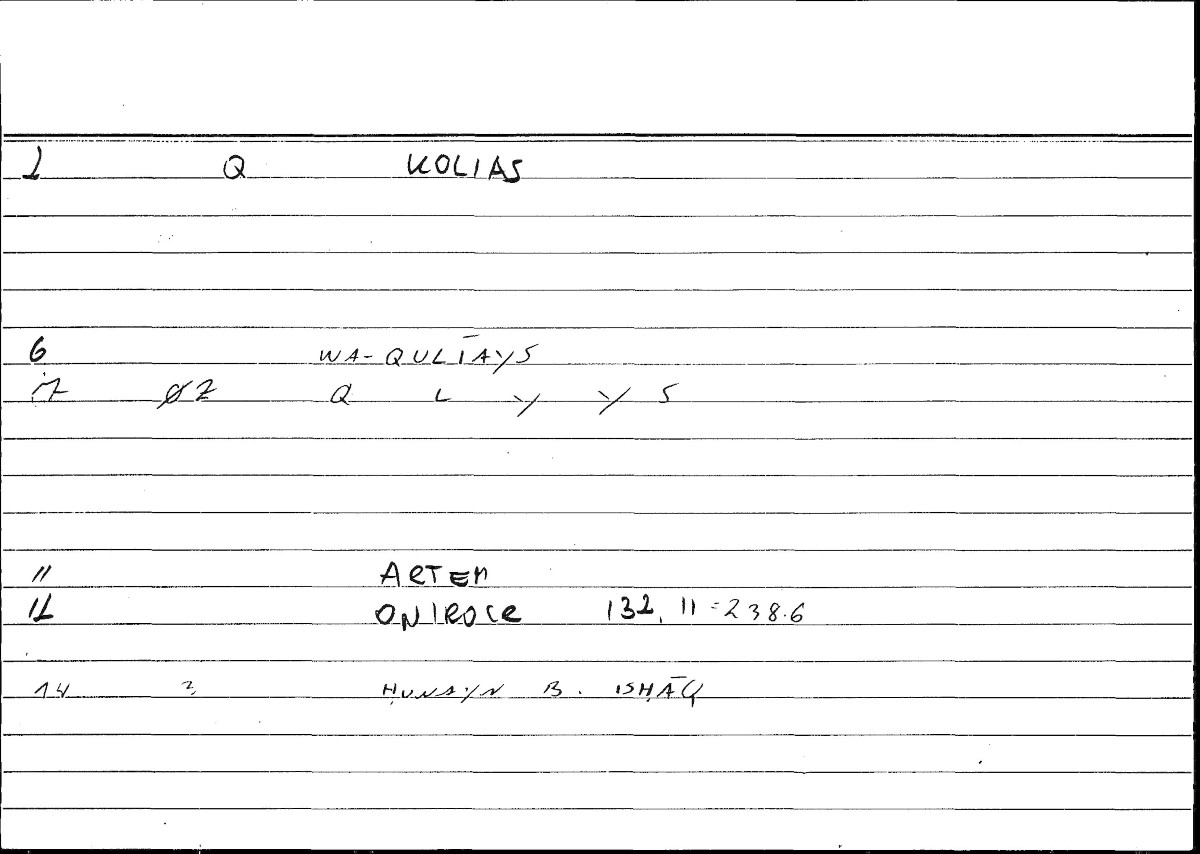 1 Q KOLIAS
6 WA-QULĪAYS
7 Ø2 Q L Y Y S
11 ARTEM
12 ONIROCR 132, 11=238.6
14 2 ḤUNAYN B. ISḤĀQ